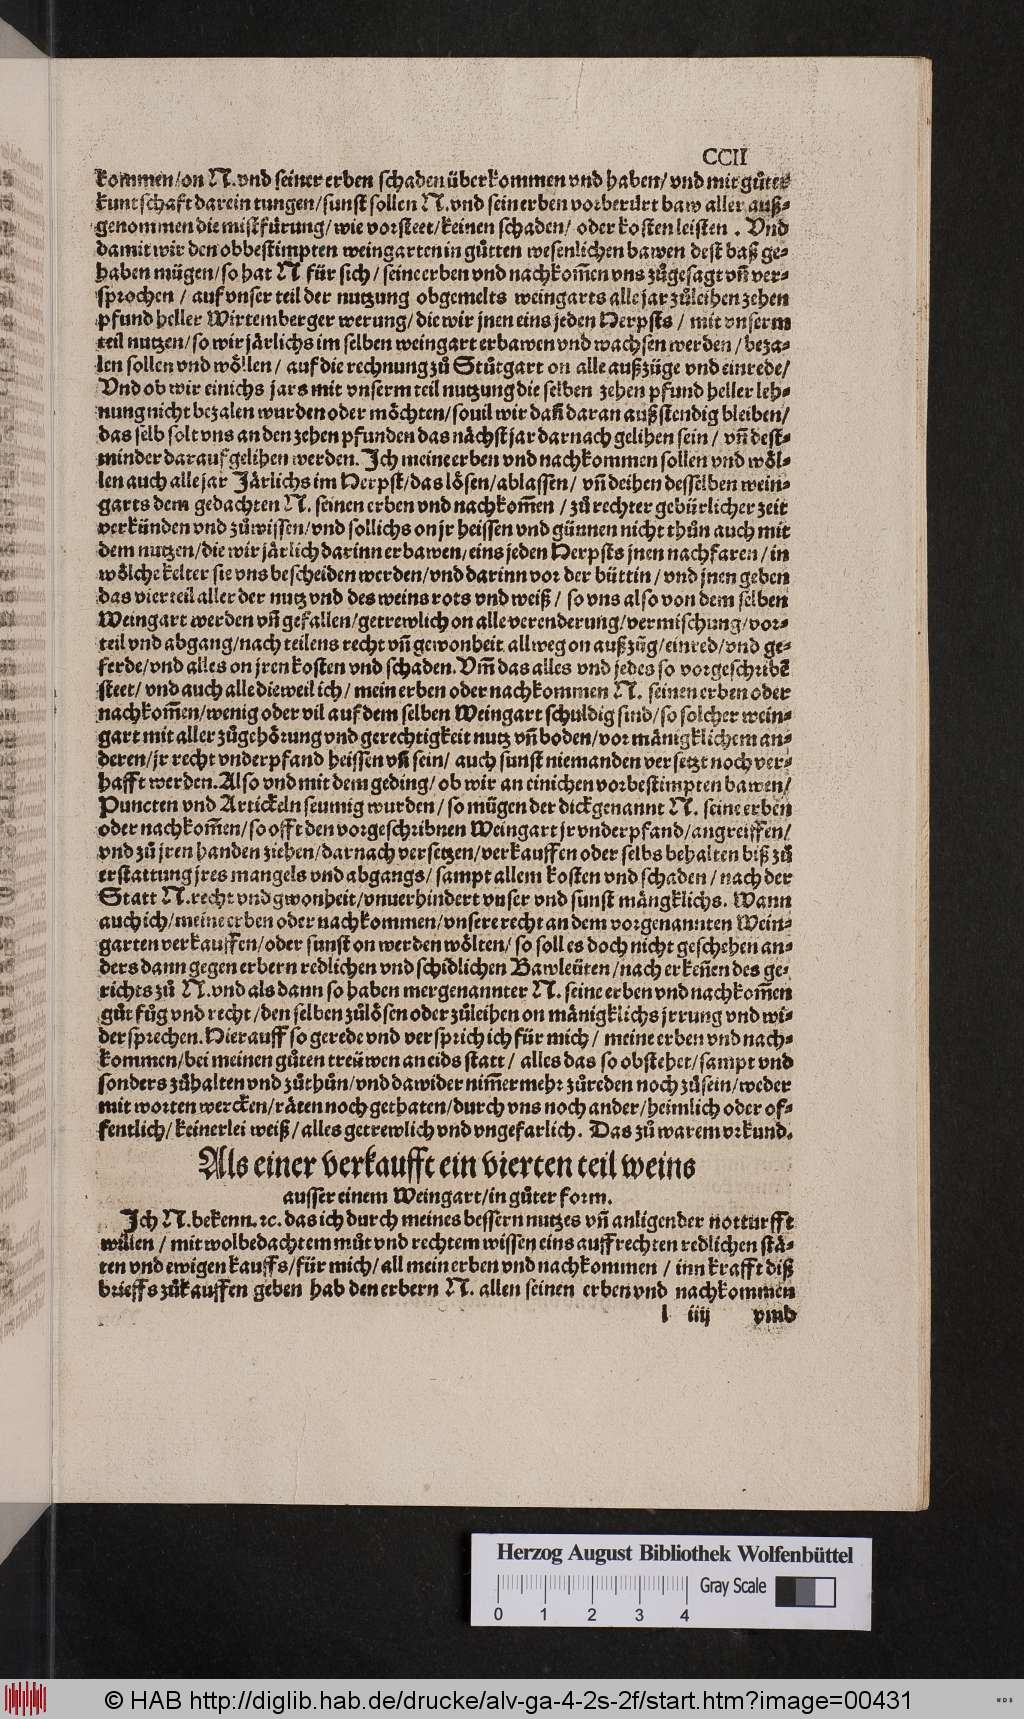 CCII
kommen/on N. vnd seiner erben schaden überkommen vnd haben/ vnd mit gůter
kuntschaft darein tungen/sunst sollen N. vnd sein erben vorberürt baw aller auß-
genommen die mistfürung/ wie vorsteet/keinen schaden/ oder kosten leisten . Vnd
damit wir den obbestimpten weingarten in gůtten wesenlichen bawen dest baß ge-
haben mügen/so hat N für sich/ seine erben vnd nachkom̃en vns zůgesagt vn̄ ver-
sprochen / auf vnser teil der nutzung obgemelts weingarts alle jar zůleihen zehen
pfund heller Wirtemberger werung/ die wir jnen eins jeden Herpsts / mit vnserm
teil nutzen/so wir järlichs im selben weingart erbawen vnd wachsen werden/ beza-
len sollen vnd wöllen/ auf die rechnung zů Stůtgart on alle außzüge vnd einrede/
Vnd ob wir einichs jars mit vnserm teil nutzung die selben zehen pfund heller leh-
nung nicht bezalen wurden oder möchten/souil wir dañ daran außstendig bleiben/
das selb solt vns an den zehen pfunden das nächst jar darnach gelihen sein/ vn̄ dest-
minder darauf gelihen werden. Ich meine erben vnd nachkommen sollen vnd wöl-
len auch alle jar Järlichs im Herpst/das lösen/ablassen/ vn̄ deihen desselben wein-
garts dem gedachten N. seinen erben vnd nachkom̃en / zů rechter gebürlicher zeit
verkünden vnd zůwissen/vnd sollichs on jr heissen vnd günnen nicht thůn auch mit
dem nutzen/die wir järlich darinn erbawen/eins jeden Herpsts jnen nachfaren/in
wölche kelter sie vns bescheiden werden/vnd darinn vor der büttin/ vnd jnen geben
das vierteil aller der nutz vnd des weins rots vnd weiß/ so vns also von dem selben
Weingart werden vn̄ gefallen/getrewlich on alle verenderung/vermischung/vor-
teil vnd abgang/nach teilens recht vn̄ gewonheit allweg on außzüg/einred/vnd ge-
ferde/vnd alles on jren kosten vnd schaden. Vm̃ das alles vnd jedes so vorgeschribē
steet/ vnd auch alle dieweil ich/ mein erben oder nachkommen N. seinen erben oder
nachkom̃en/wenig oder vil auf dem selben Weingart schuldig sind/so solcher wein-
gart mit aller zůgehörung vnd gerechtigkeit nutz vn̄ boden/vor mänigklichem an-
deren/jr recht vnderpfand heissen vn̄ sein/ auch sunst niemanden versetzt noch ver-
hafft werden. Also vnd mit dem geding/ ob wir an einichen vorbestimpten bawen/
Puncten vnd Artickeln seumig wurden/ so mügen der dickgenannt N. seine erben
oder nachkom̃en/so offt den vorgeschribnen Weingart jr vnderpfand/angreiffen/
vnd zů jren handen ziehen/darnach versetzen/verkauffen oder selbs behalten biß zů
erstattung jres mangels vnd abgangs/ sampt allem kosten vnd schaden/ nach der
Statt N. recht vnd gwonheit/vnuerhindert vnser vnd sunst mängklichs. Wann
auch ich/meine erben oder nachkommen/vnsere recht an dem vorgenannten Wein-
garten verkauffen/oder sunst on werden wölten/ so soll es doch nicht geschehen an-
ders dann gegen erbern redlichen vnd schidlichen Bawleüten/nach erkeñen des ge-
richts zů N. vnd als dann so haben mergenannter N. seine erben vnd nachkom̃en
gůt fůg vnd recht/den selben zůlösen oder zůleihen on mänigklichs jrrung vnd wi-
dersprechen. Hierauff so gerede vnd versprich ich für mich/ meine erben vnd nach-
kommen/bei meinen gůten treüwen an eids statt/ alles das so obstehet/sampt vnd
sonders zůhalten vnd zůthůn/vnd dawider nim̃ermehr zůreden noch zůsein/weder
mit worten wercken/räten noch gethaten/durch vns noch ander/heimlich oder of-
fentlich/keinerlei weiß/alles getrewlich vnd vngefarlich. Das zů warem vrkund.
Als einer verkaufft ein vierten teil weins
ausser einem Weingart/in gůter form.
Ich N. bekenn. ꝛc. das ich durch meines bessern nutzes vn̄ anligender notturfft
willen / mit wolbedachtem můt vnd rechtem wissen eins auffrechten redlichen stä-
ten vnd ewigen kauffs/für mich/all mein erben vnd nachkommen / inn krafft diß
brieffs zůkauffen geben hab den erbern N. allen seinen erben vnd nachkommen
l iiij vnd
Herzog August Bibliothek Wolfenbüttel
Gray Scale
0 1 2 3 4
© HAB http://diglib.hab.de/drucke/alv-ga-4-2s-2f/start.htm?image=00431